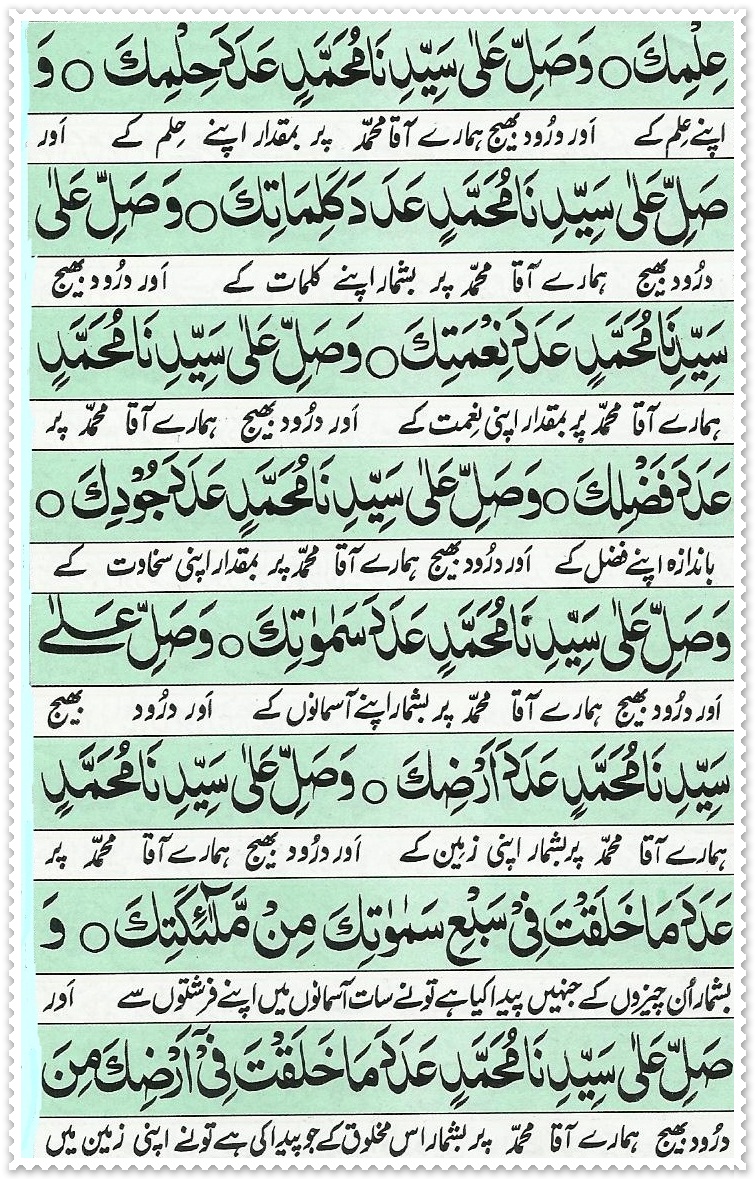 عِلْمِكَ ○ وَصَلِّ عَلٰى سَيِّدِنَا مُحَمَّدٍ عَدَدَ حِلْمِكَ ○ وَ
اپنے عِلم کے اَور درُود بھیج ہمارے آقا محمّد پر بمقدار اپنے حِلم کے اَور
صَلِّ عَلٰى سَيِّدِنَا مُحَمَّدٍ عَدَدَ كَلِمَاتِكَ ○ وَصَلِّ عَلٰى
درُود بھیج ہمارے آقا محمّد پر بشمار اپنے کلمات کے اَور درُود بھیج
سَيِّدِنَا مُحَمَّدٍ عَدَدَ نِعْمَتِكَ ○ وَصَلِّ عَلٰى سَيِّدِنَا مُحَمَّدٍ
ہمارے آقا محمّد پر بمقدار اپنی نِعمت کے اَور درُود بھیج ہمارے آقا محمّد پر
عَدَدَ فَضْلِكَ ○ وَصَلِّ عَلٰى سَيِّدِنَا مُحَمَّدٍ عَدَدَ جُوْدِكَ ○
باندازہ اپنے فضل کے اَور درُود بھیج ہمارے آقا محمّد پر بمقدار اپنی سخاوت کے
وَصَلِّ عَلٰى سَيِّدِنَا مُحَمَّدٍ عَدَدَ سَمٰوٰتِكَ ○ وَصَلِّ عَلٰى
اَور درُود بھیج ہمارے آقا محمّد پر بشمار اپنے آسمانوں کے اَور درُود بھیج
سَيِّدِنَا مُحَمَّدٍ عَدَدَ اَرْضِكَ ○ وَصَلِّ عَلٰى سَيِّدِنَا مُحَمَّدٍ
ہمارے آقا محمّد پر بشمار اپنی زمین کے اَور درُود بھیج ہمارے آقا محمّد پر
عَدَدَ مَا خَلَقْتَ فِىْ سَبْعِ سَمٰوٰتِكَ مِنْ مَّلٰٓئِكَتِكَ ○ وَ
بشمار اُن چیزوں کے جنہیں پیدا کیا ہے تو نے سات آسمانوں میں اپنے فرشتوں سے اَور
صَلِّ عَلٰى سَيِّدِنَا مُحَمَّدٍ عَدَدَ مَا خَلَقْتَ فِىْٓ اَرْضِكَ مِنَ
درُود بھیج ہمارے آقا محمّد پر بشمار اس مخلوق کے جو پیدا کی ہے تو نے اپنی زمین میں